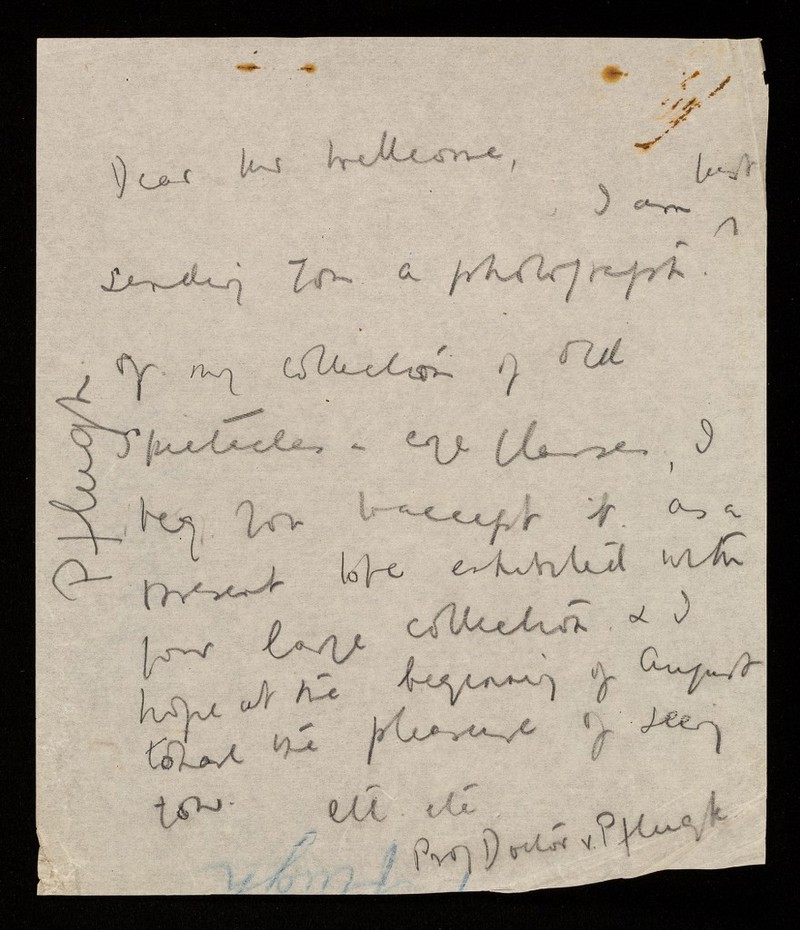 Dear Mr Wellcome,
I am just
sending you a photograph
of my collection of old
Spectacles - eye glasses, I
beg you to accept it as a
present to be exhibited with
your large collection & I
hope at the beginning of August
to have the pleasure of seeing
you. etc etc
Prof Doctor v. Pflugk
Pflugk